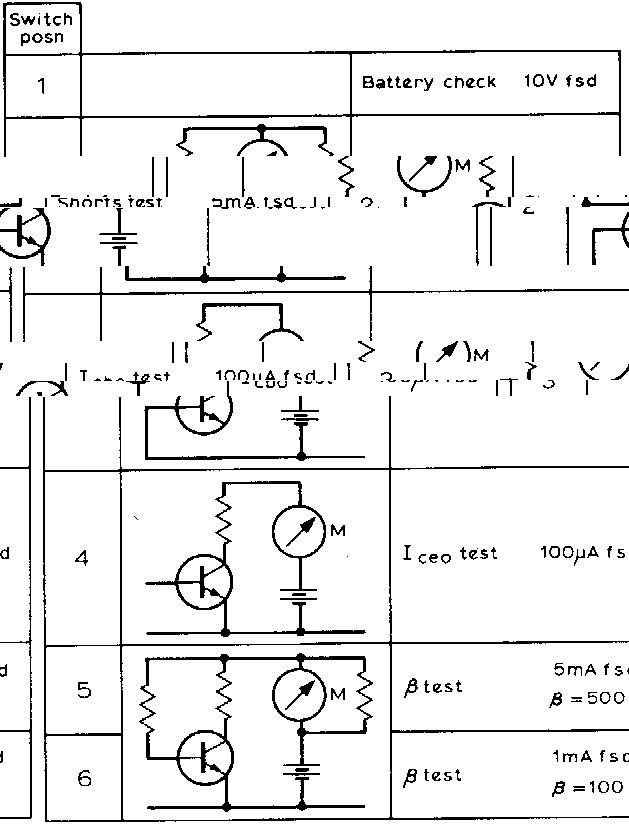 Switch
posn
1 Battery check 10V fsd
M
Shorts test 5mA fsd
M
I cbo test 100µA fsd
4 M I ceo test 100µA fs
d
5 M β test 5mA fsd
β = 500
6 β test 1mA fsd
β = 100